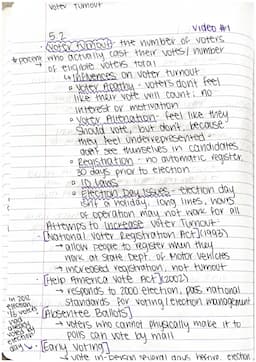 Voter Turnout
Video #1
5.2
Voter Turnout - the number of voters
who actually cast their votes/number
of eligible voters total
↳ Influences on voter turnout
Voter Apathy - voters dont feel
like their vote will count; no
interest or motivation
Voter Alienation - feel like they
should vote, but dont, because
they feel underrepresented -
dont see themselves in candidates
Registration - no automatic register
30 days prior to election
ID Laws
Election Day Issues - election day
isnt a holiday, long lines, hours
of operation may not work for all
Attempts to increase Voter Turnout
[National Voter Registration Act] (1993)
→ allow people to register when they
at State Dept. of Motor Vehicles
→ increased registration, not turnout
[Help America Vote Act] (2002)
→ responds to 2000 election, pass national
standards for voting/election management
[Absentee Ballots]
→ voters who cannot physically make it to
polls can vote by mail
[Early Voting]
→ vote in-person several days before election